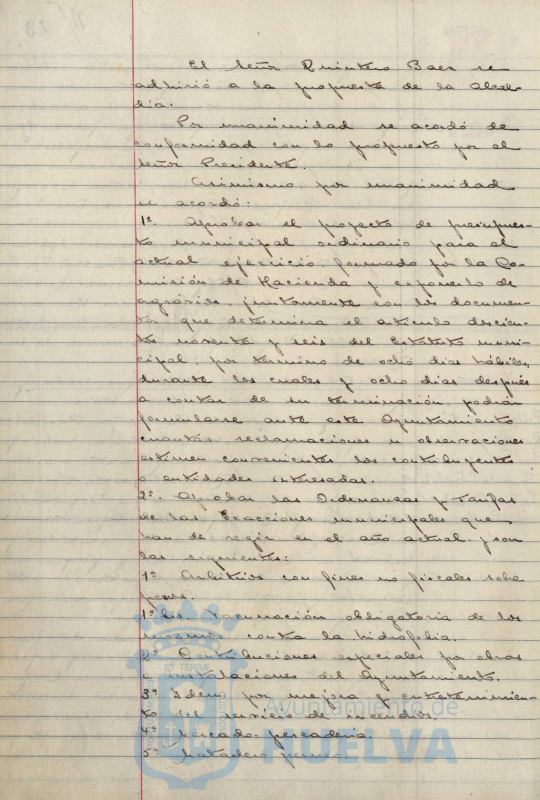 El Señor Quintero Baez se
adhirió a la propuesta de la Alcal-
día.
Por unanimidad se acordó de
conformidad con lo propuesto por el
Señor Presidente.
Asimismo, por unanimidad
se acordó:
1º. Aprobar el proyecto de presupues-
to municipal ordinario para el
actual ejercicio, formado por la Co-
misión de Hacienda y exponerlo de
agravios, juntamente con los documen-
tos que determina el artículo doscien-
tos noventa y seis del Estatuto muni-
cipal, por término de ocho días hábiles,
durante los cuales y ocho días después
a contar de su terminación, podrán
formularse ante este Ayuntamiento
cuantas reclamaciones u observaciones
estimen convenientes los contribuyentes
o entidades interesadas.
2º. Aprobar las Ordenanzas y Tarifas
de las Exacciones municipales que
han de regir en el año actual, y son
las siguientes:
1ª Arbitrios con fines no fiscales sobre
perros.
1ª bis. Vacunación obligatoria de los
mismos contra la hidrofobia.
2ª Contribuciones especiales por obras
e instalaciones del Ayuntamiento.
3ª Idem. por mejora y entretenimien-
to del servicio de incendios.
4ª Mercado pescadería.
5ª Matadero
Ayuntamiento de
HUELVA